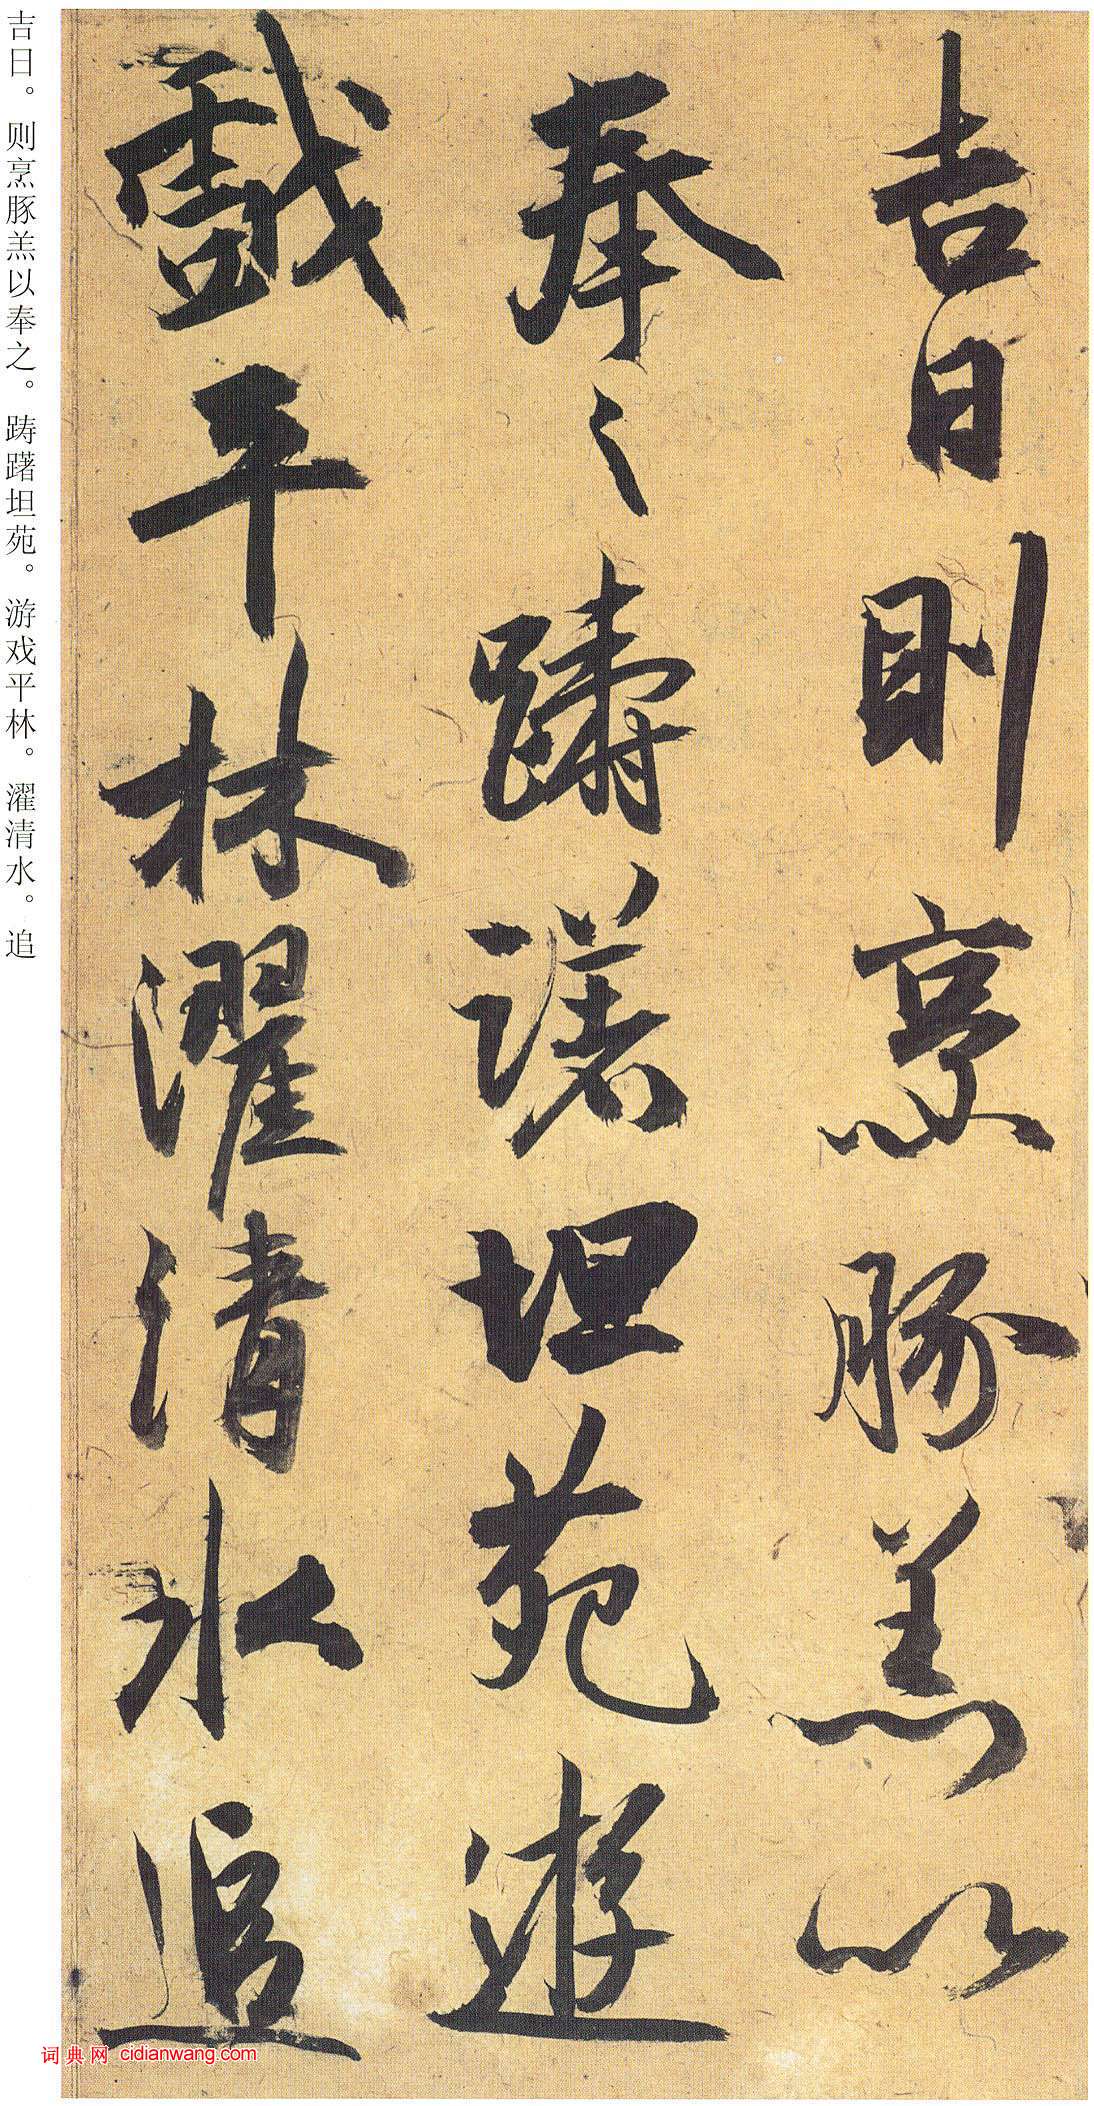 吉日則烹豚羔以
奉之躊躇坦苑遊
戲平林濯清水追
吉日。则烹豚羔以奉之。踌躇坦苑。游戏平林。濯清水。追
词典网 cidianwang.com